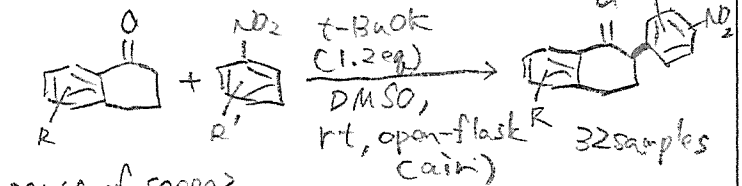 O
NO2
t-BuOK
(1.2eq)
DMSO,
rt, open-flask
(air)
R
+
R'
NO2
R
32samples